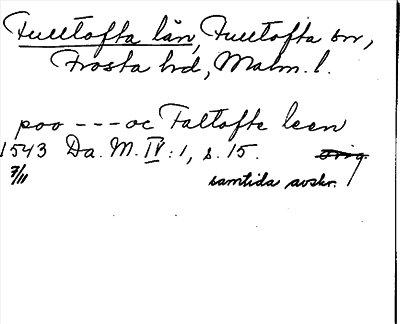 Fulltofta län, Fulltofta sn,
Frosta hd, Malm. l.
poo --- oc Faltofte leen
1543 Da. M. IV: 1, s. 15. orig.
7/11 samtida avskr.